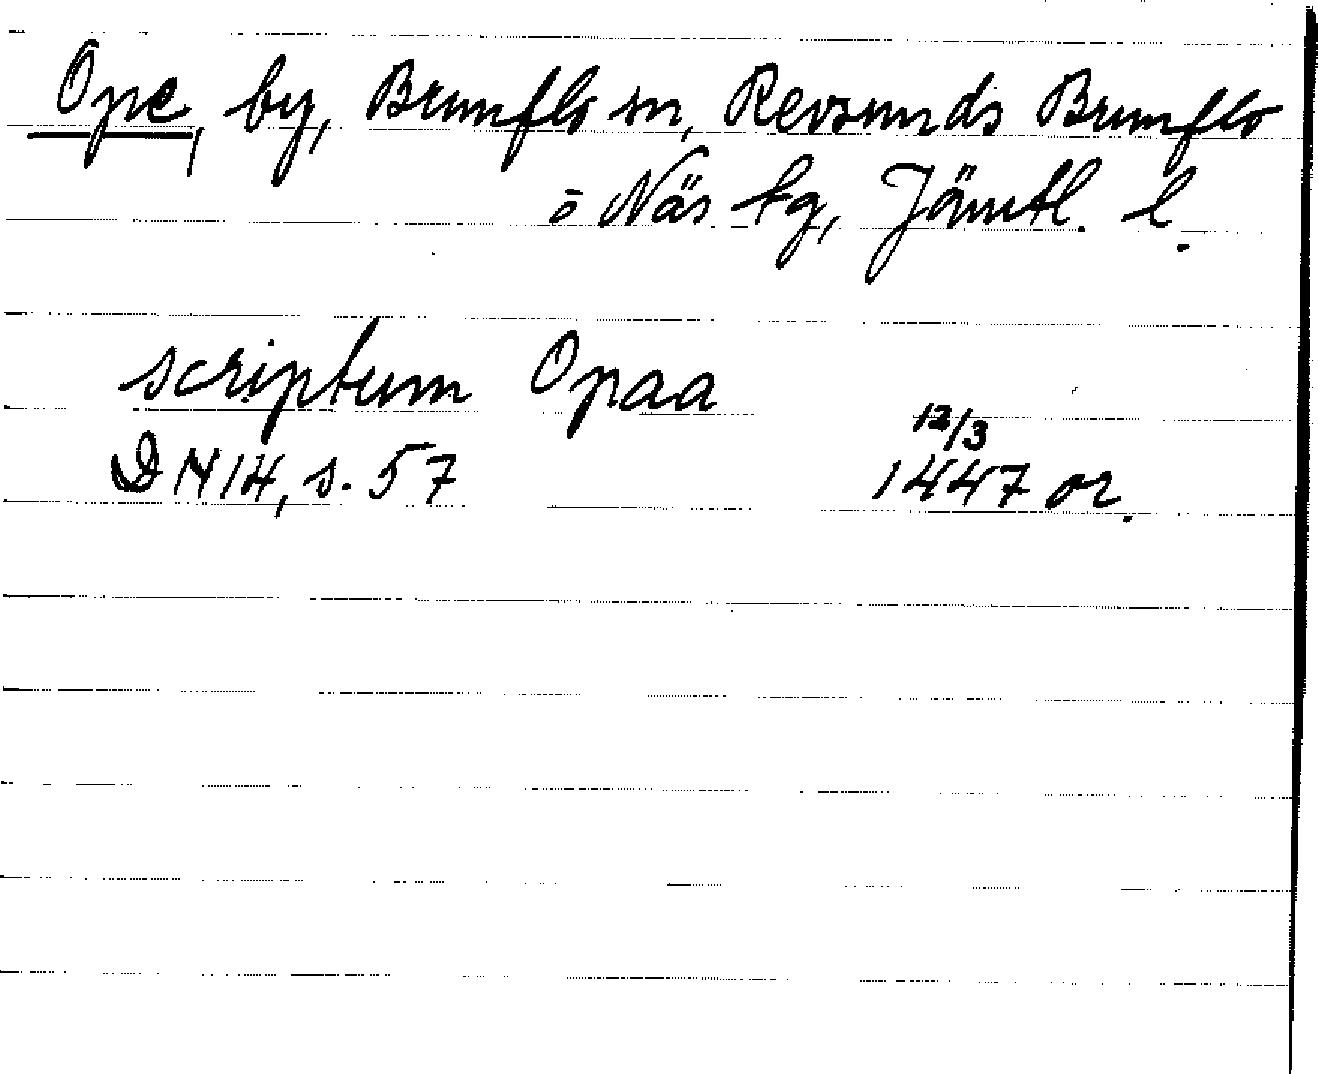 Ope, by, Brunflo sn, Revsunds Brunflo
o Näs tg, Jämtl. l.
scriptum Opaa
12/3
DN 14, s. 57 1447 or.